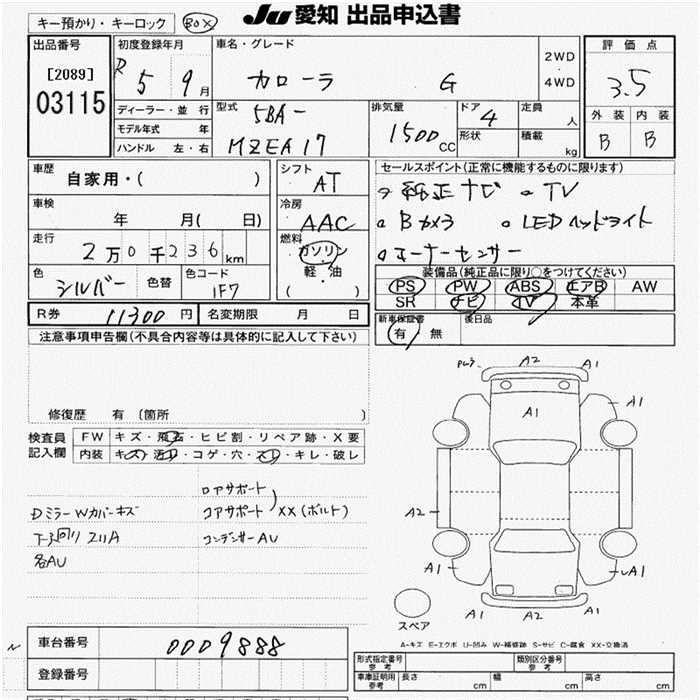 キー預かり・キーロック BOX
JU 愛知 出品申込書
出品番号
[2089]
03115
初度登録年月
R 5 9月
ディーラー・並 行
モデル年式 年
ハンドル 左・右
車名・グレード
カローラ G
2WD
・
4WD
型式
5BA-
MZEA17
排気量
1500CC
ドア
4
形状
定員
人
積載
kg
評価点
3.5
外装 内装
B B
車歴
自家用・( )
車検
年 月( 日)
走行
2万0千236km
色
シルバー
色替
色コード
1F7
シフト
AT
冷房
AAC
燃料
ガソリン
軽・油
( )
セールスポイント(正常に機能するものに限ります)
純正ナビ TV
Bカメラ LEDヘッドライト
コーナーセンサー
装備品(純正品に限り○をつけてください)
PS PW ABS エアB AW
SR ナビ TV 本革
新車保証書
有 無
後日品
R券 11300円
名変期限 月 日
注意事項申告欄(不具合内容等は具体的に記入して下さい)
修復歴 有 〔箇所 〕
検査員
記入欄
FW キズ・飛石・ヒビ割・リペア跡・X要
内装 キズ・汚れ・コゲ・穴・スレ・キレ・破レ
ロアサポート
コアサポート XX(ボルト)
DミラーWカバーキズ
下廻り スリA
コンデンサーAU
各AU
A2 A1
A1
A1
A2
A1
A1
A1
A2
スペア
A-キズ E-エクボ U-凹み W-補修跡 S-サビ C-腐食 XX-交換済
車台番号 0009888
登録番号
形式指定番号
参考
類別区分番号
参考
車庫証明用
参考
長さ cm
幅 cm
高さ cm